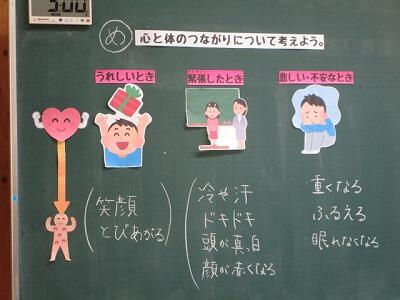 5:00
め 心と体のつながりについて考えよう。
うれしいとき
緊張したとき
悲しい・不安なとき
笑顔
とびあがる
冷や汗
ドキドキ
頭が真、白
顔が赤くなる
重くなる
ふるえる
眠れなくなる